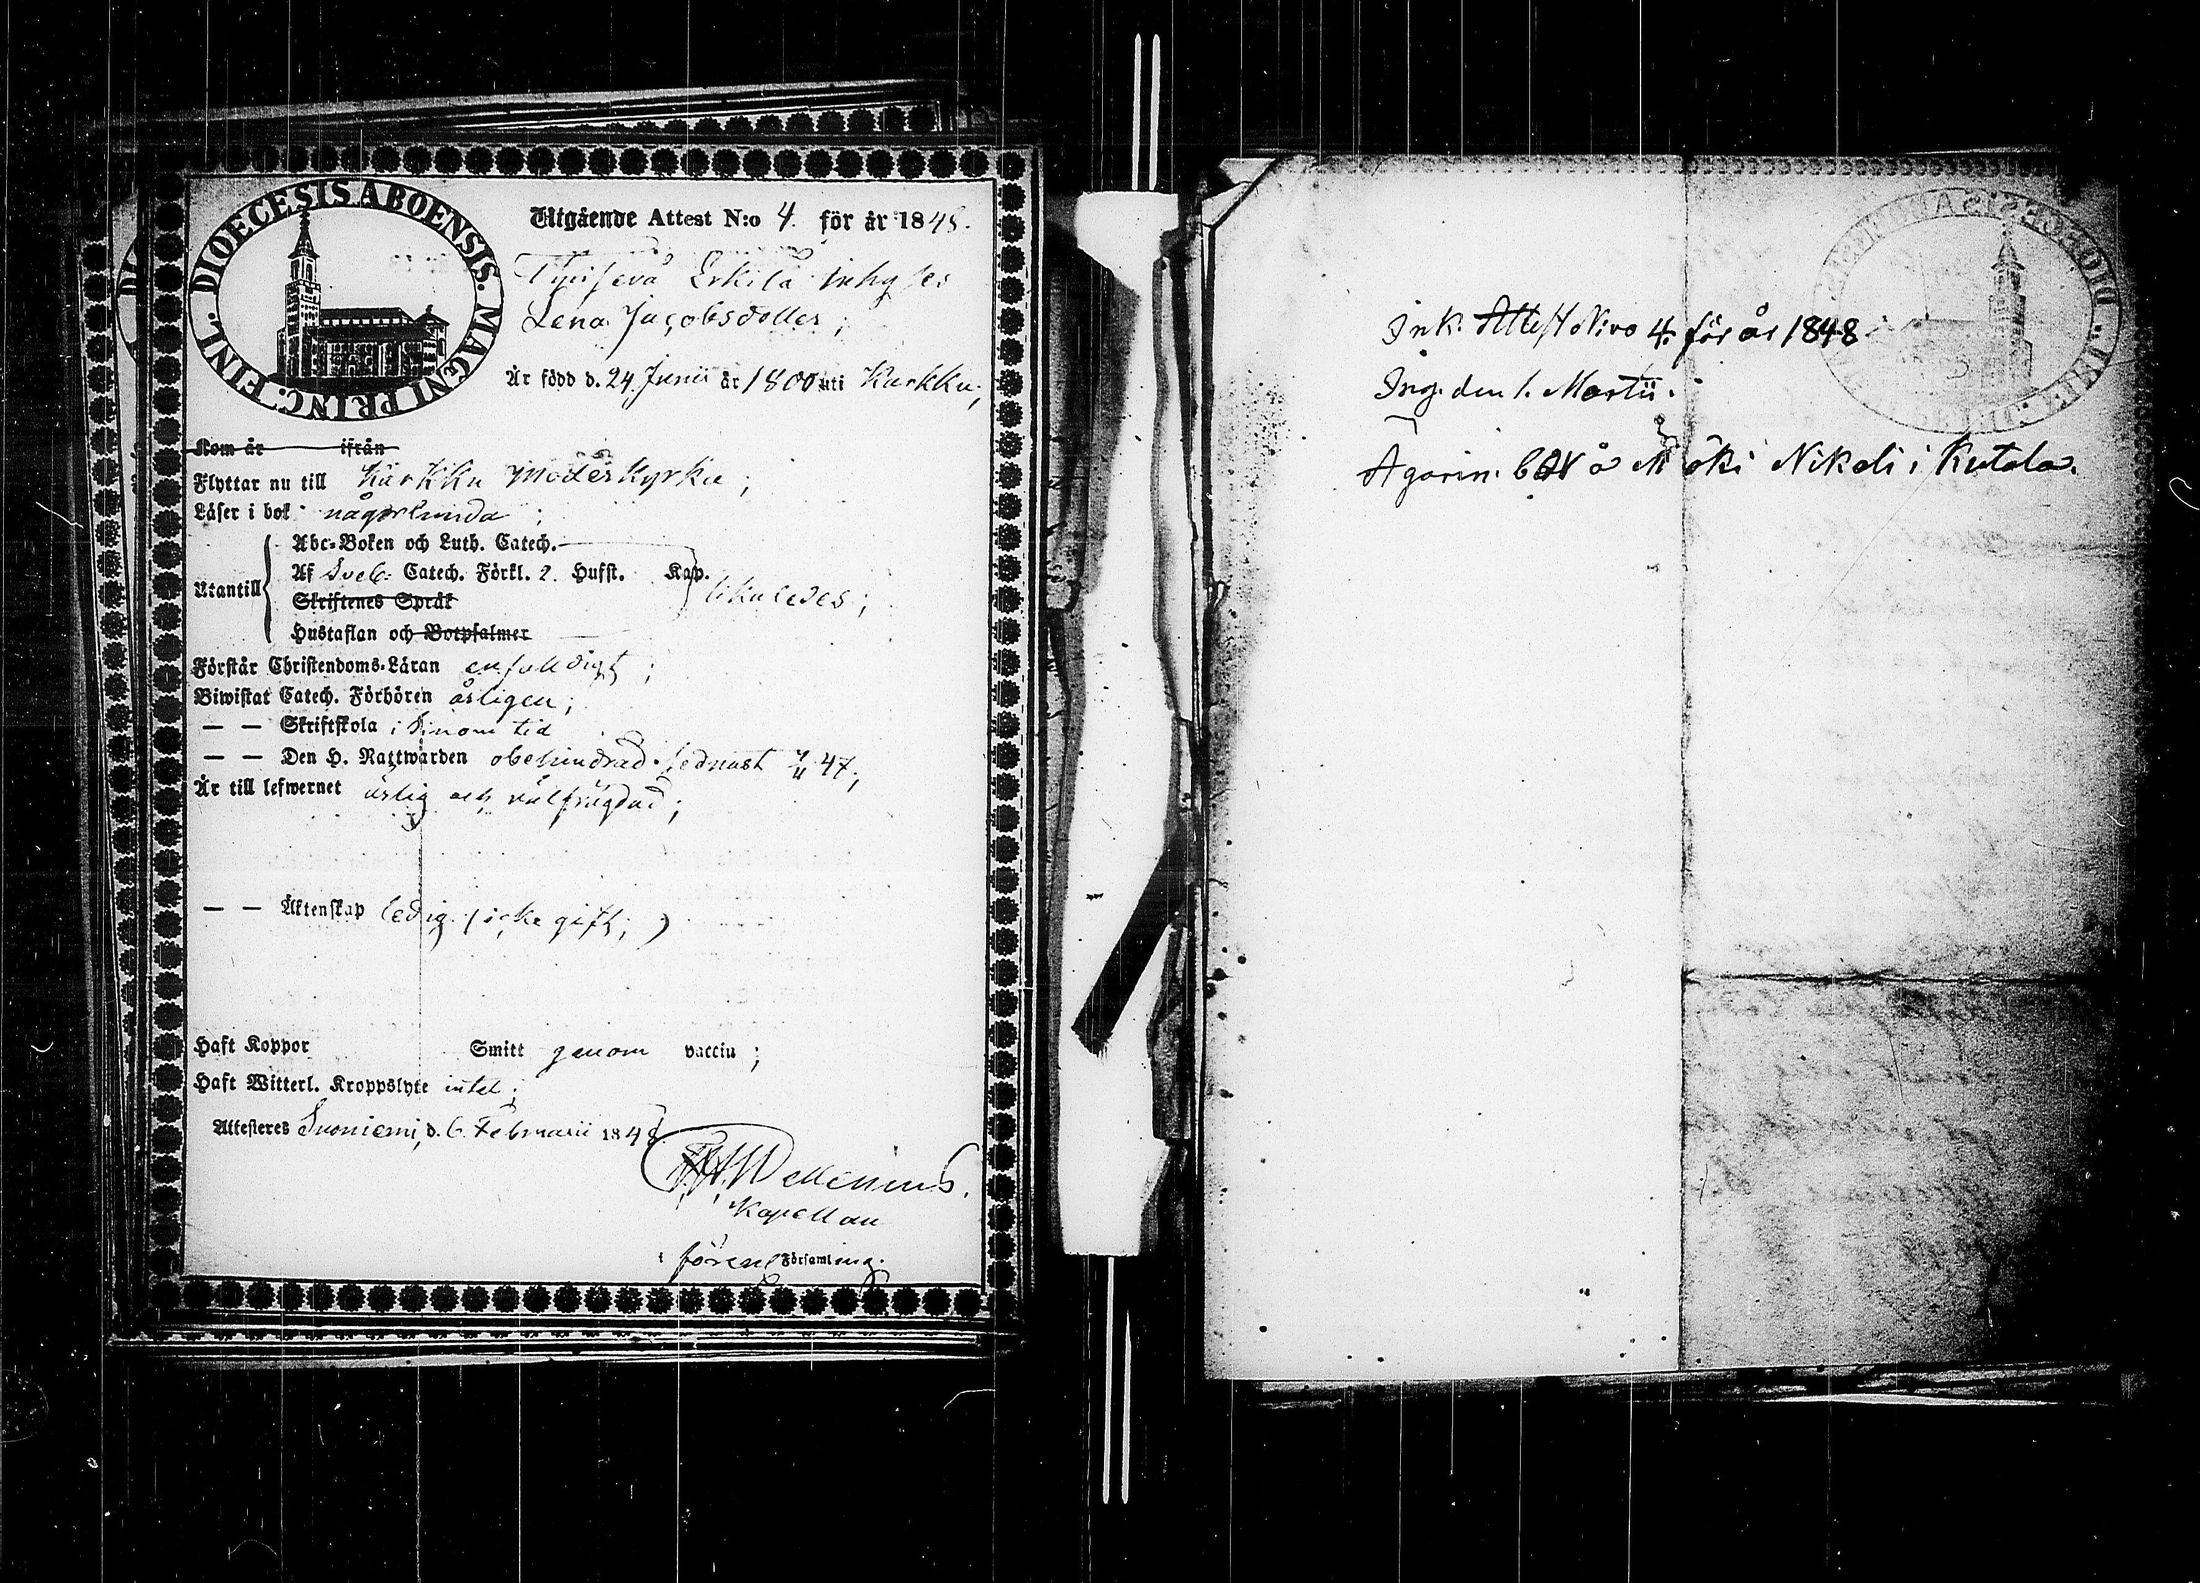 DIOECESIS ABOENSIS. MAGNI PRINC. FINL.
Utgående Attest N:o 4. för år 1848.
Erkilä inhyses
Lena Jacobsdotter;
Är född d. 24 Junii år 1800 uti Karkku;
Kom år ifrån
Flyttar nu till Karkku Moderkyrka;
Läser i bok någorlunda;
Utantill
Abc-Boken och Luth. Catech.
Af Sveb: Catech. Förkl. 2. Hufst. Kap.
Skriftenes Språk
likaledes;
Hustaflan och Botpsalmer
Förstår Christendoms-Läran enfaldigt;
Biwistat Catech. Förhören årligen;
— — Skriftskola i sinom tid
— — Den H. Nattwarden obehindrad. sednast 47;
Är till lefwernet ärlig och välfrägdad;
— — Äktenskap ledig (icke gift;)
Haft Koppor Smitt genom vaccin;
Haft Witterl. Kroppslyte intet;
Attesteras Suoniemi, d. 6. Februarii 1848.
Wellenius.
Kapellan
i Församling.
Ink. Attest N:ro 4. för år 1848
Ing. den 1. Martii.
å Mäki Nikeli i Kutala.